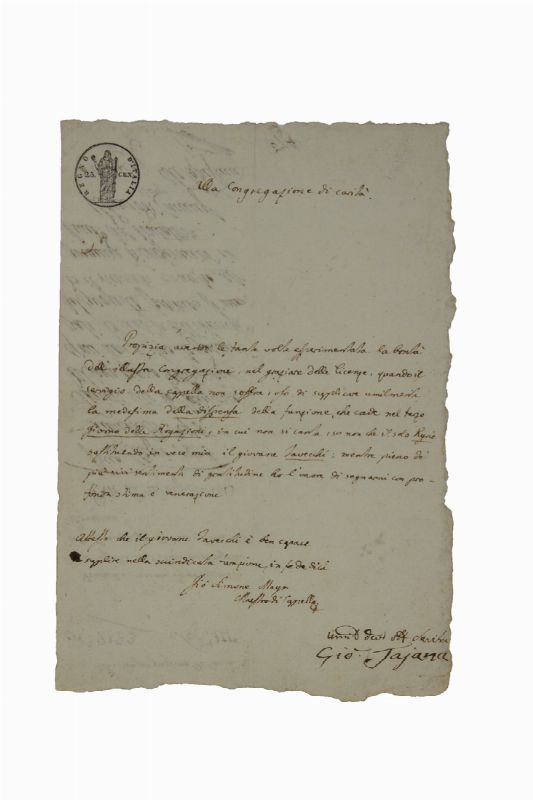 REGNO D'ITALIA
25. CEN.
Alla Congregazione di carità
Propizia avendo le tante volte esperimentata la bontà
dell' Congregazione, nel graziare delle licenze, quando il
servigio della Capella non soffra, oso di supplicare umilmente
la medesima della dispensa della funzione, che cade nel terzo
giorno delle Rogazioni, in cui non si canta, se non che il solo Kyrie
sostituendo in vece mia il giovane Tavecchi: mentre pieno dè
più vivi sentimenti di gratitudine ho l'onore di segnarmi con pro-
fonda stima e venerazione
Attesto che il giovane Tavecchi è ben capace
supplire nella suindicata funzione in fede di ciò
Gio Simone Mayr
Maestro di Capella
Gio. Tajana